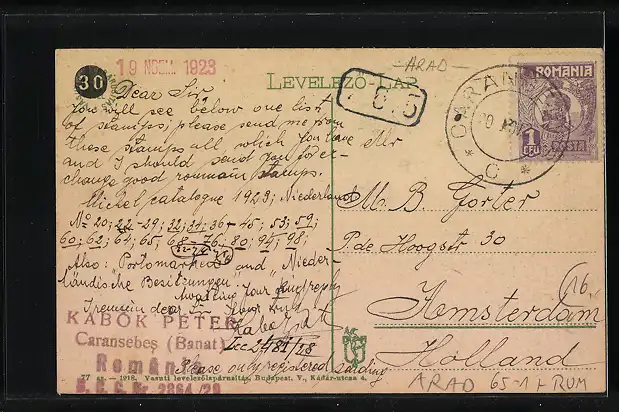 30
19 NOEM. 1923
LEVELEZŐ-LAP
ARAD
CARAN
C
ROMANIA
1 LEU
POSTA
Dear Sir,
You will see below one list
of stamps; please send me from
these stamps all, which you have
and I should send you for ex-
change good roumain stamps.
Michel catalogue 1923; Niederland
No 20; 22-29; 32; 34; 36-45; 53; 59;
60; 62; 64; 65; 68-76; 80; 94; 98;
Also: Portomarken and "Nieder-
ländische Besitzungen"
Awaiting your reply
I remain dear Sir Yours truly
Kabók P
KABÓK PÉTER
Caransebeş (Banat)
Romania
Please only registered sending
77 sz. — 1918. Vasuti levelezőlapárusitás, Budapest, V., Kádár-utcza 4.
Mr
M. B. Gorter
P. de Hoogstr 30
16
Amsterdam
Holland
ARAD 65-1+RUM